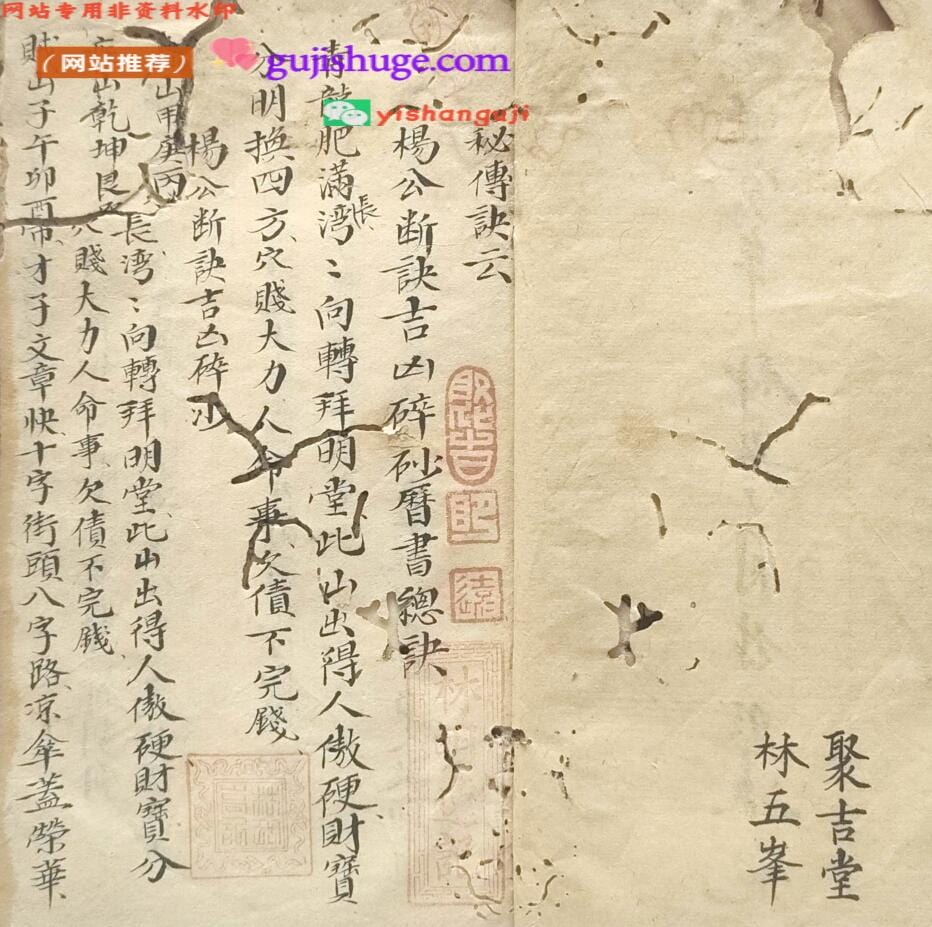 网站专用非资料水印
(网站推荐)
gujishuge.com
yishanguji
聚吉堂
林五峯
秘傳訣云
楊公断訣吉凶碎砂曆書總訣
青龍肥滿湾〻向轉拜明堂此山出得人傲硬財寶
張
分明換四方穴賤大力人命事欠債不完錢
楊公断訣吉凶碎沙
長湾〻向轉拜明堂此山出得人傲硬財寶分
乾坤艮 賤大力人命事欠債不完錢
山子午卯酉帶才子文章快十字街頭八字路凉傘蓋榮華
聚吉
照
遠